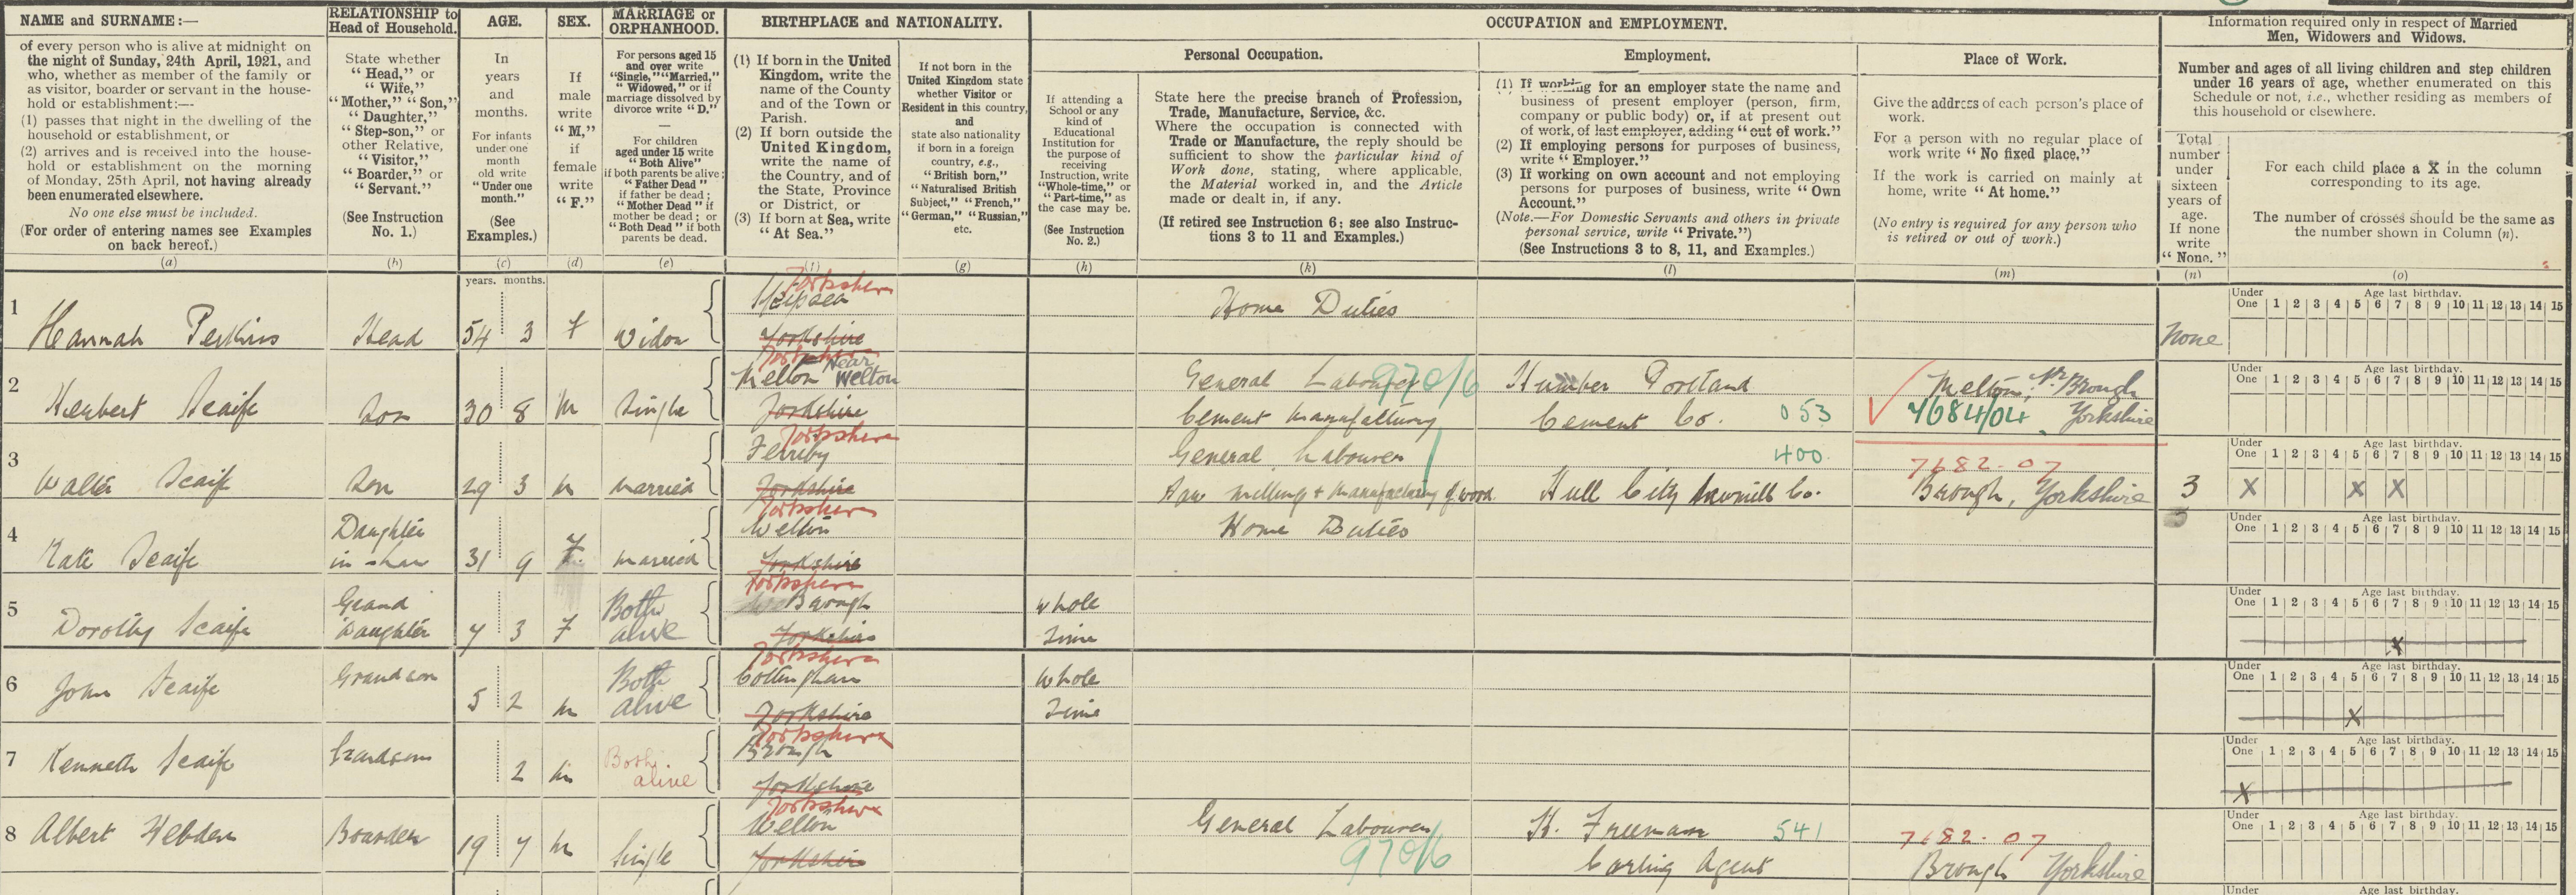 NAME and SURNAME :—
of every person who is alive at midnight on
the night of Sunday, 24th April, 1921, and
who, whether as member of the family or
as visitor, boarder or servant in the house-
hold or establishment :—
(1) passes that night in the dwelling of the
household or establishment, or
(2) arrives and is received into the house-
hold or establishment on the morning
of Monday, 25th April, not having already
been enumerated elsewhere.
No one else must be included.
(For order of entering names see Examples
on back hereof.)
(a)
RELATIONSHIP to
Head of Household.
State whether
“ Head,” or
“ Wife,”
“Mother,” “Son,”
“ Daughter,”
“ Step-son,” or
other Relative,
“ Visitor,”
“ Boarder,” or
“ Servant.”
(See Instruction
No. 1.)
(b)
AGE.
In
years
and
months.
For infants
under one
month
old write
“Under one
month.”
(See
Examples.)
(c)
SEX.
If
male
write
“ M,”
if
female
write
“ F.”
(d)
MARRIAGE or
ORPHANHOOD.
For persons aged 15
and over write
“Single,” “Married,”
“ Widowed,” or if
marriage dissolved by
divorce write “ D.”
—
For children
aged under 15 write
“ Both Alive”
if both parents be alive ;
“ Father Dead ”
if father be dead ;
“ Mother Dead ” if
mother be dead ; or
“ Both Dead ” if both
parents be dead.
(e)
BIRTHPLACE and NATIONALITY.
(1) If born in the United
Kingdom, write the
name of the County
and of the Town or
Parish.
(2) If born outside the
United Kingdom,
write the name of
the Country, and of
the State, Province
or District, or
(3) If born at Sea, write
“ At Sea.”
(f)
If not born in the
United Kingdom state
whether Visitor or
Resident in this country,
and
state also nationality
if born in a foreign
country, e.g.,
“ British born,”
“ Naturalised British
Subject,” “ French,”
“ German,” “ Russian,”
etc.
(g)
OCCUPATION and EMPLOYMENT.
If attending a
School or any
kind of
Educational
Institution for
the purpose of
receiving
Instruction, write
“Whole-time,” or
“Part-time,” as
the case may be.
(See Instruction
No. 2.)
(h)
Personal Occupation.
State here the precise branch of Profession,
Trade, Manufacture, Service, &c.
Where the occupation is connected with
Trade or Manufacture, the reply should be
sufficient to show the particular kind of
Work done, stating, where applicable,
the Material worked in, and the Article
made or dealt in, if any.
(If retired see Instruction 6 : see also Instruc-
tions 3 to 11 and Examples.)
(k)
Employment.
(1) If working for an employer state the name and
business of present employer (person, firm,
company or public body) or, if at present out
of work, of last employer, adding “ out of work.”
(2) If employing persons for purposes of business,
write “ Employer.”
(3) If working on own account and not employing
persons for purposes of business, write “ Own
Account.”
(Note.—For Domestic Servants and others in private
personal service, write “ Private.”)
(See Instructions 3 to 8, 11, and Examples.)
(l)
Place of Work.
Give the address of each person's place of
work.
For a person with no regular place of
work write “ No fixed place.”
If the work is carried on mainly at
home, write “ At home.”
(No entry is required for any person who
is retired or out of work.)
(m)
Information required only in respect of Married
Men, Widowers and Widows.
Number and ages of all living children and step children
under 16 years of age, whether enumerated on this
Schedule or not, i.e., whether residing as members of
this household or elsewhere.
Total
number
under
sixteen
years of
age.
If none
write
“ None. ”
(n)
For each child place a X in the column
corresponding to its age.
The number of crosses should be the same as
the number shown in Column (n).
(o)
years. months.
Yorkshire
Under Age last birthday.
One 1 2 3 4 5 6 7 8 9 10 11 12 13 14 15
1 Home Duties
Hannah Perkins Head 54 3 f Widow Yorkshire None
Yorkshire
Under Age last birthday.
One 1 2 3 4 5 6 7 8 9 10 11 12 13 14 15
2 Melton Near Welton General Labourer 970/6 Humber Portland Melton, Nr. Brough
Herbert Scaife Son 30 8 M Single Yorkshire Cement manufacturing Cement Co. 053 7684/04 Yorkshire
Yorkshire
Under Age last birthday.
One 1 2 3 4 5 6 7 8 9 10 11 12 13 14 15
3 Ferriby General Labourer 400 7682.07
Walter Scaife Son 29 3 M Married Yorkshire Saw milling + manufacturing of wood Hull City Sawmill Co. Brough, Yorkshire 3 X X X
Yorkshire
Under Age last birthday.
One 1 2 3 4 5 6 7 8 9 10 11 12 13 14 15
4 Daughter Welton Home Duties
Kate Scaife in-law 31 9 F. Married Yorkshire
Yorkshire
Under Age last birthday.
One 1 2 3 4 5 6 7 8 9 10 11 12 13 14 15
5 Grand Both Brough Whole
Dorothy Scaife Daughter 7 3 F alive Yorkshire Time X
Yorkshire
Under Age last birthday.
One 1 2 3 4 5 6 7 8 9 10 11 12 13 14 15
6 Grandson Both Cottingham Whole
John Scaife 5 2 M alive Yorkshire Time X
Yorkshire
Under Age last birthday.
One 1 2 3 4 5 6 7 8 9 10 11 12 13 14 15
7 Grandson Both Brough
Kenneth Scaife 2 M alive Yorkshire X
Yorkshire
Under Age last birthday.
One 1 2 3 4 5 6 7 8 9 10 11 12 13 14 15
8 Welton General Labourer H. Freeman 541 7682.07
Albert Hebden Boarder 19 7 M Single Yorkshire 970/6 Carting Agent Brough Yorkshire
Under Age last birthday.